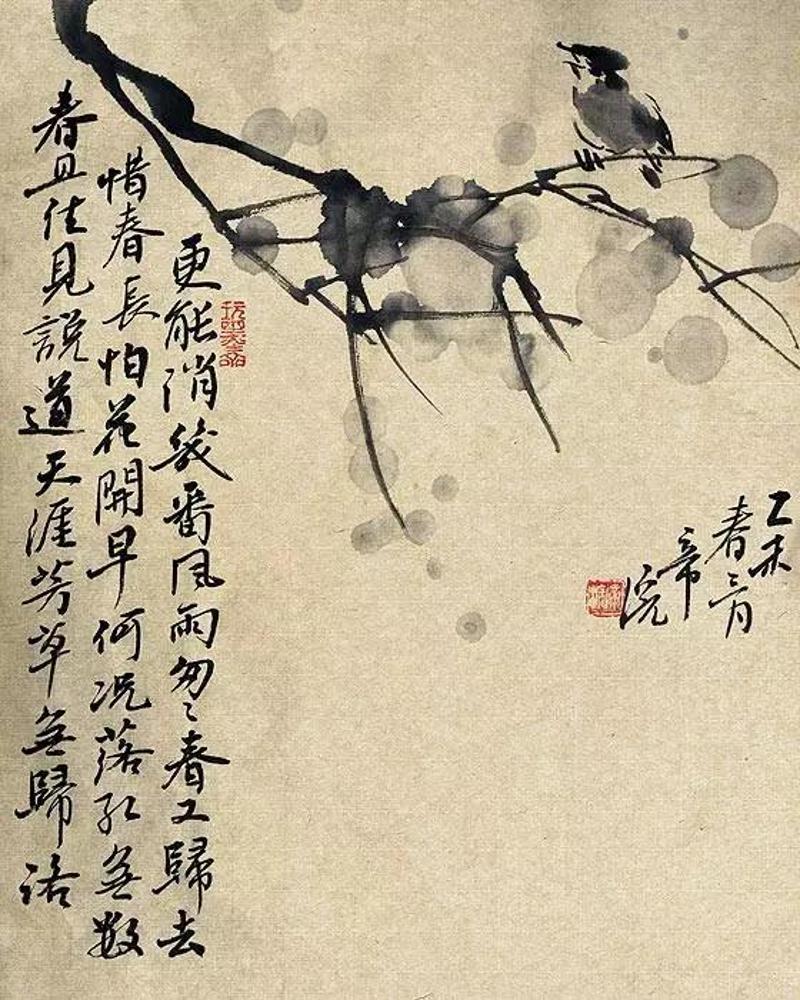 乙未
春三月
更能消幾番風雨匆々春又歸去
惜春長怕花開早何況落紅無數
春且住見說道天涯芳草無歸路